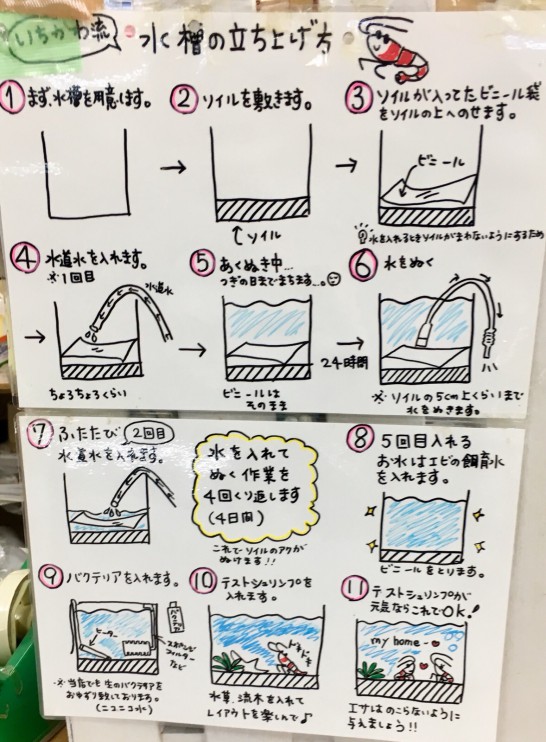 いちかわ流
水槽の立ち上げ方
① まず、水槽を用意します。
② ソイルを敷きます。
ソイル
③ ソイルが入ってたビニール袋
をソイルの上へのせます。
ビニール
水を入れるときソイルがまわないようにするため
④ 水道水を入れます。
※1回目
水道水
ちょろちょろくらい
⑤ あくぬき中…
つぎの日までまちます…。
24時間
ビニールは
そのまま
⑥ 水をぬく
※ソイルの5cm上くらいまで
水をぬきます。
⑦ ふたたび 2回目
水道水を入れます。
水を入れて
ぬく作業を
4回くり返します
(4日間)
これでソイルのアクが
ぬけます!!
⑧ 5回目入れる
お水はエビの飼育水
を入れます。
ビニールをとります。
⑨ バクテリアを入れます。
ヒーター
バクテリア
スポンジ
フィルター
など
※当店でも生のバクテリアを
おゆずり致しております。
(ニコニコ水)
⑩ テストシュリンプを
入れます。
ドキドキ
水草、流木を入れて
レイアウトを楽しんで♪
⑪ テストシュリンプが
元気ならこれでOK!
my home
エサはのこらないように
与えましょう!!